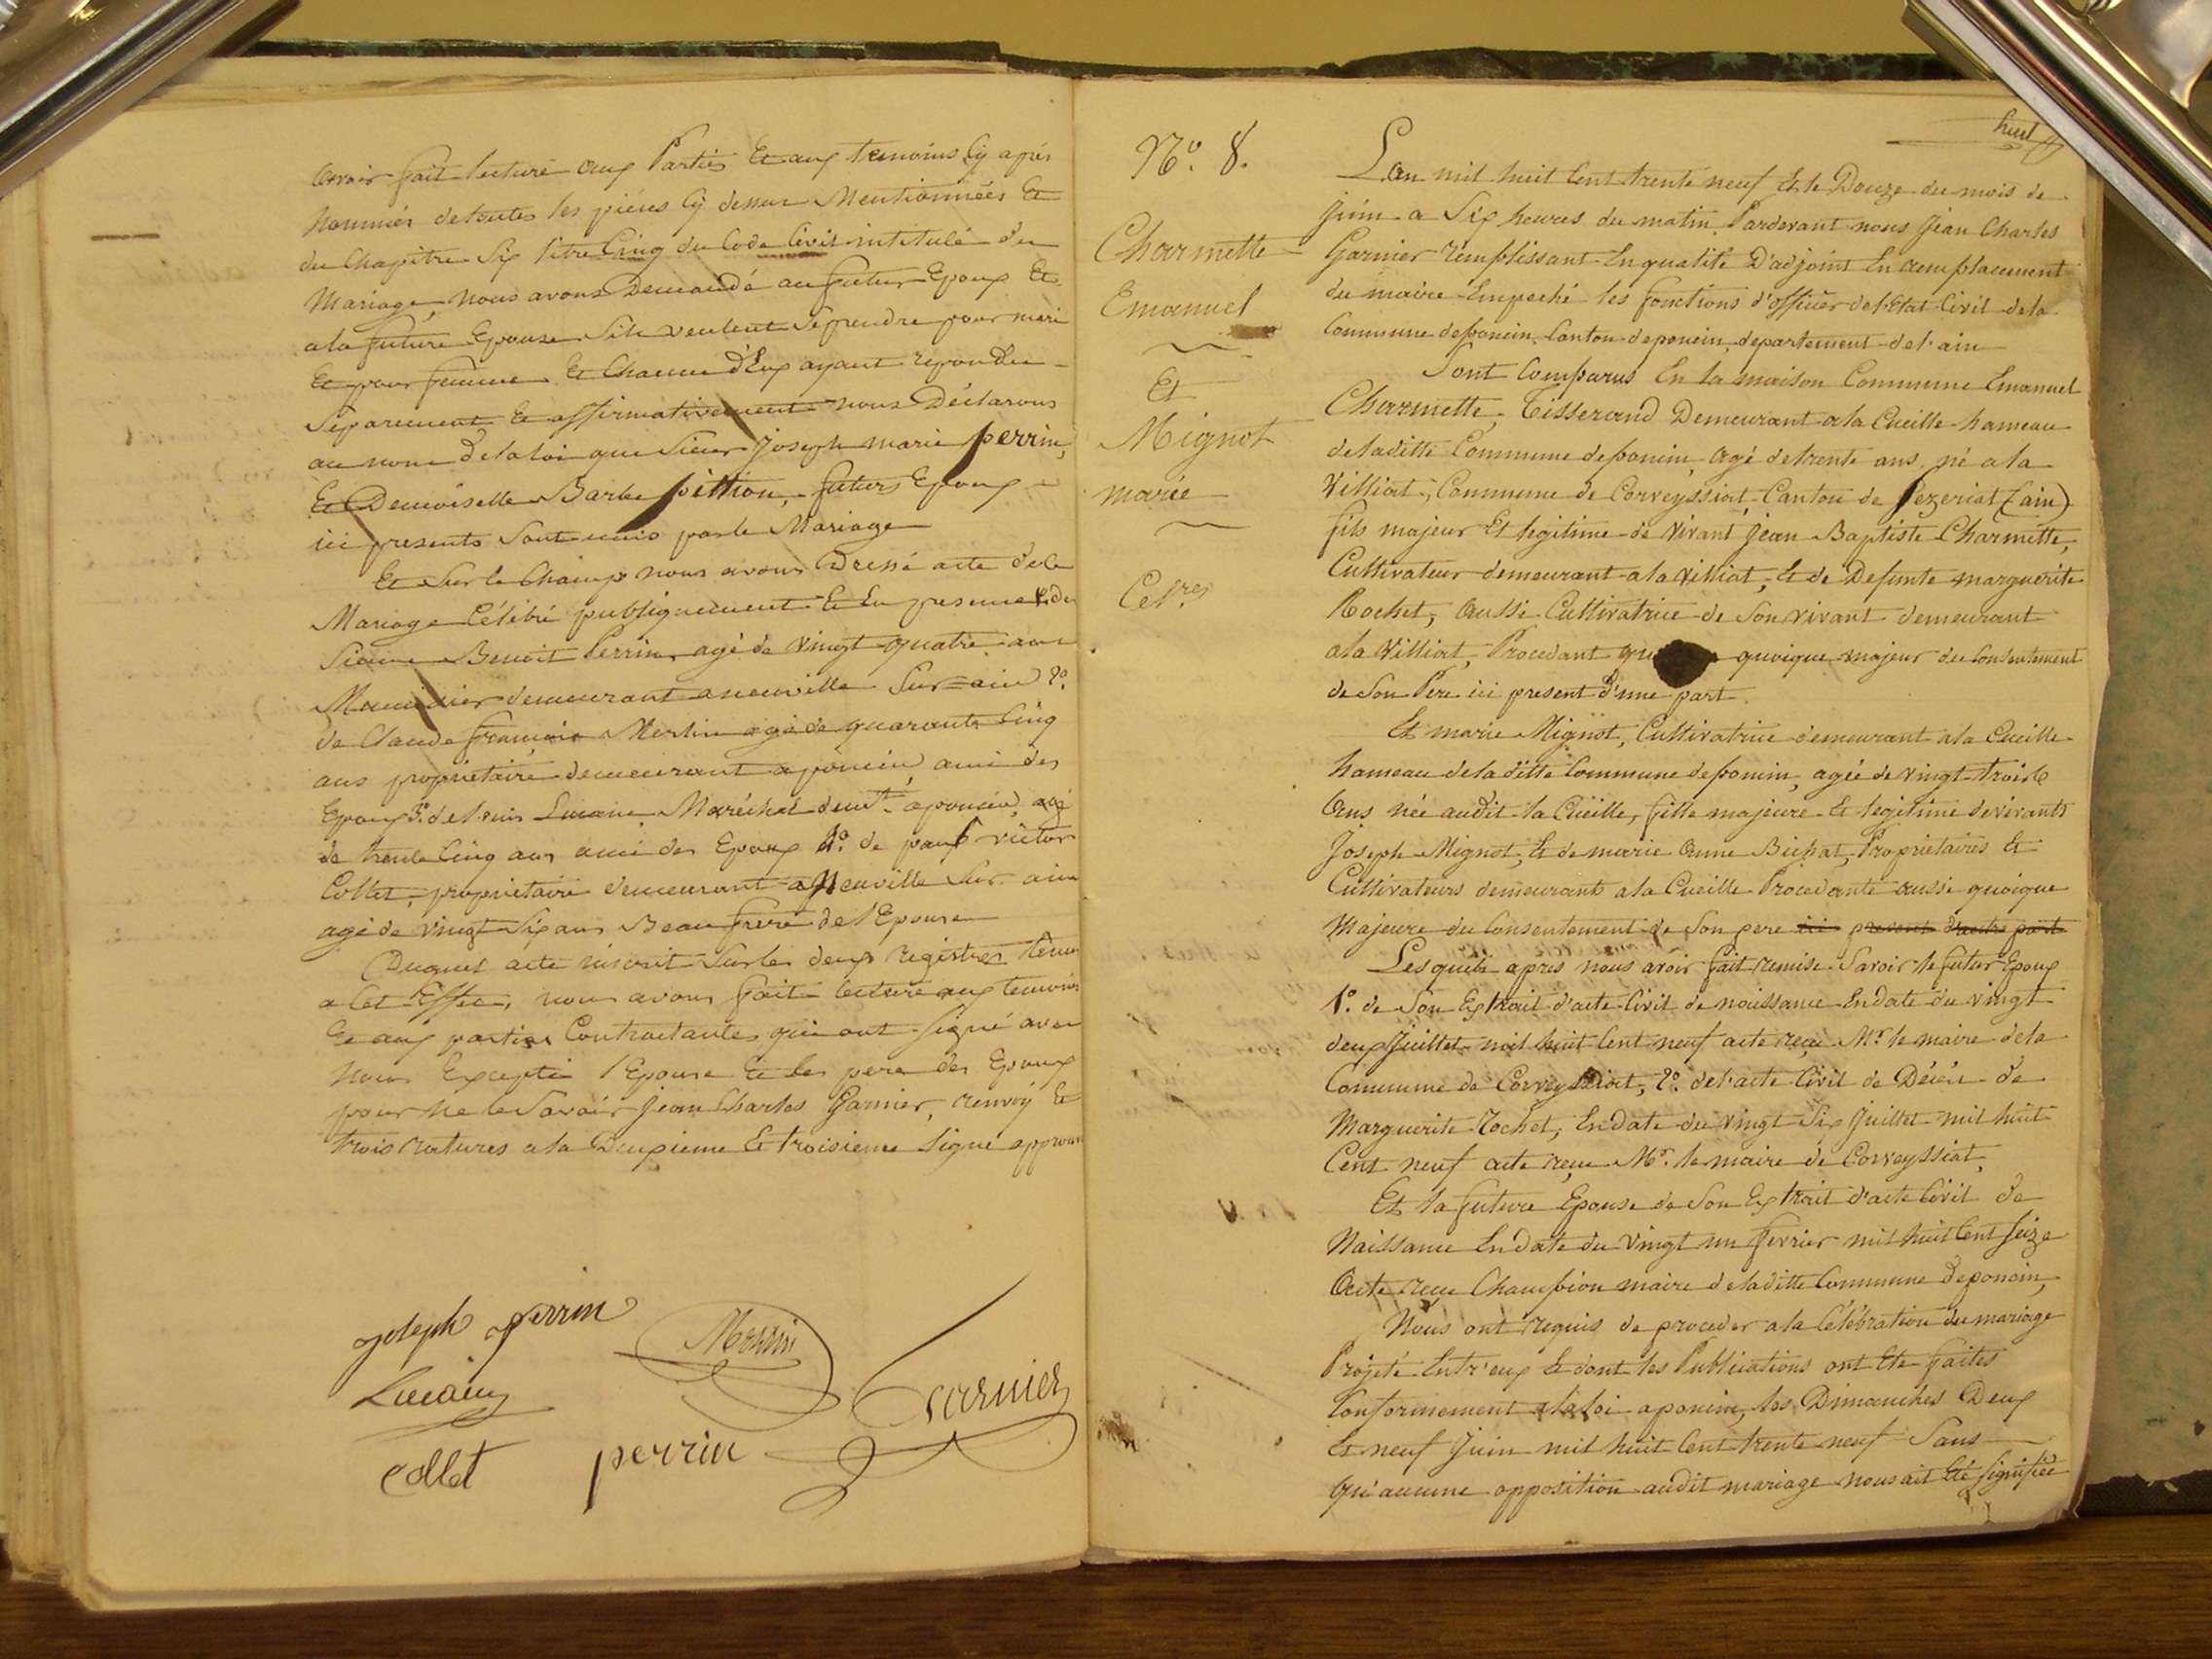 avoir fait lecture aux Parties Et aux temoins Cy après
Nommés de toutes les pièces Cy dessus Mentionnées Et
du Chapitre Six titre Cinq du Code Civil intitulé du
Mariage, nous avons Demandé au futur Epoux Et
a la future Epouse S'ils veulent Se prendre pour mari
Et pour femme Et Chacun d'Eux ayant repondu
Séparement Et affirmativement nous Déclarons
au nom de la loi que Sieur Joseph marie perrin,
Et Demoiselle Barbe pittion, futurs Epoux
ici presents Sont unis par le Mariage
Et Sur le Champ nous avons Dressé acte de Ce
Mariage Célébré publiquement Et En presence 1º du
Sieur Benoit Perrin agé de vingt quatre ans
demeurant a neuville Sur ain 2º.
de Claude françois Merlin agé de quarante Cinq
ans propriétaire demeurant a poncin, ami des
Epoux 3º. de Maréchal demt. a poncin, agé
de trente Cinq ans ami des Epoux 4º. de paul victor
Collet, propriétaire demeurant a Neuville Sur ain
agé de vingt Six ans Beau frere de l'Epouse
Duquel acte inscrit Sur les deux registres tenus
a Cet Effet, nous avons fait lecture aux temoins
Et aux parties Contractantes qui ont Signé avec
Nous Excepté l'Epouse Et les pere des Epoux
pour ne le Savoir Jean Charles Garnier, renvoy Et
trois ratures a la Deuxieme Et troisieme ligne approuvé
Joseph perrin
Collet
perrin
Garnier
huit
Nº. 8.
Charmette
Emanuel
Et
Mignot
marie
Celres
L'an mil huit Cent trente neuf Et le Douze du mois de
Juin a Six heures du matin, Pardevant nous Jean Charles
Garnier remplissant En qualité D'adjoint En remplacement
du maire Empeché les fonctions d'officier de l'Etat Civil de la
Commune de poncin, Canton de poncin, departement de l'ain
Sont Comparus En la maison Commune Emanuel
Charmette, Tisserand Demeurant a la Cueille hameau
de la ditte Commune de poncin, agé de trente ans, né a la
Villiat, Commune de Corveyssiat, Canton de Cezeriat (ain)
fils majeur Et legitime de vivant Jean Baptiste Charmette,
Cultivateur demeurant a la villiat, Et de Defunte marguerite
Rochet, Aussi Cultivatrice de Son vivant demeurant
a la Villiat, Procedant quoique majeur du Consentement
de Son Pere ici present d'une part.
Et marie Mignot, Cultivatrice demeurant a la Cueille
hameau de la ditte Commune de poncin, agée de vingt trois
Ans née audit la Cueille, fille majeure Et legitime de vivants
Joseph Mignot, Et de marie Anne Bichat, Propriétaires Et
Cultivateurs demeurants a la Cueille Procedante aussi quoique
Majeure du Consentement de Son pere ici present d'autre part
Lesquels apres nous avoir fait remise Savoir le futur Epoux
1º. de Son Extrait d'acte Civil de naissance En date du vingt
deux Juillet mil huit Cent neuf acte reçu Mr. le maire de la
Commune de Corveyssiat, 2º. de l'acte Civil de Décès de
Marguerite Rochet, En date du vingt Six Juillet mil huit
Cent neuf acte reçu Mr. le maire de Corveyssiat,
Et la future Epouse de Son Extrait d'acte Civil de
Naissance En date du vingt un fevrier mil huit Cent Seize
Acte reçu Champion maire de la ditte Commune de poncin,
Nous ont requis de proceder a la Célébration du mariage
Projeté Entr'eux Et dont les Publications ont Eté faites
Conformement a la loi a poncin, les Dimanches Deux
Et neuf Juin mil huit Cent trente neuf Sans
Qu'aucune opposition audit mariage nous ait Eté Signifiée